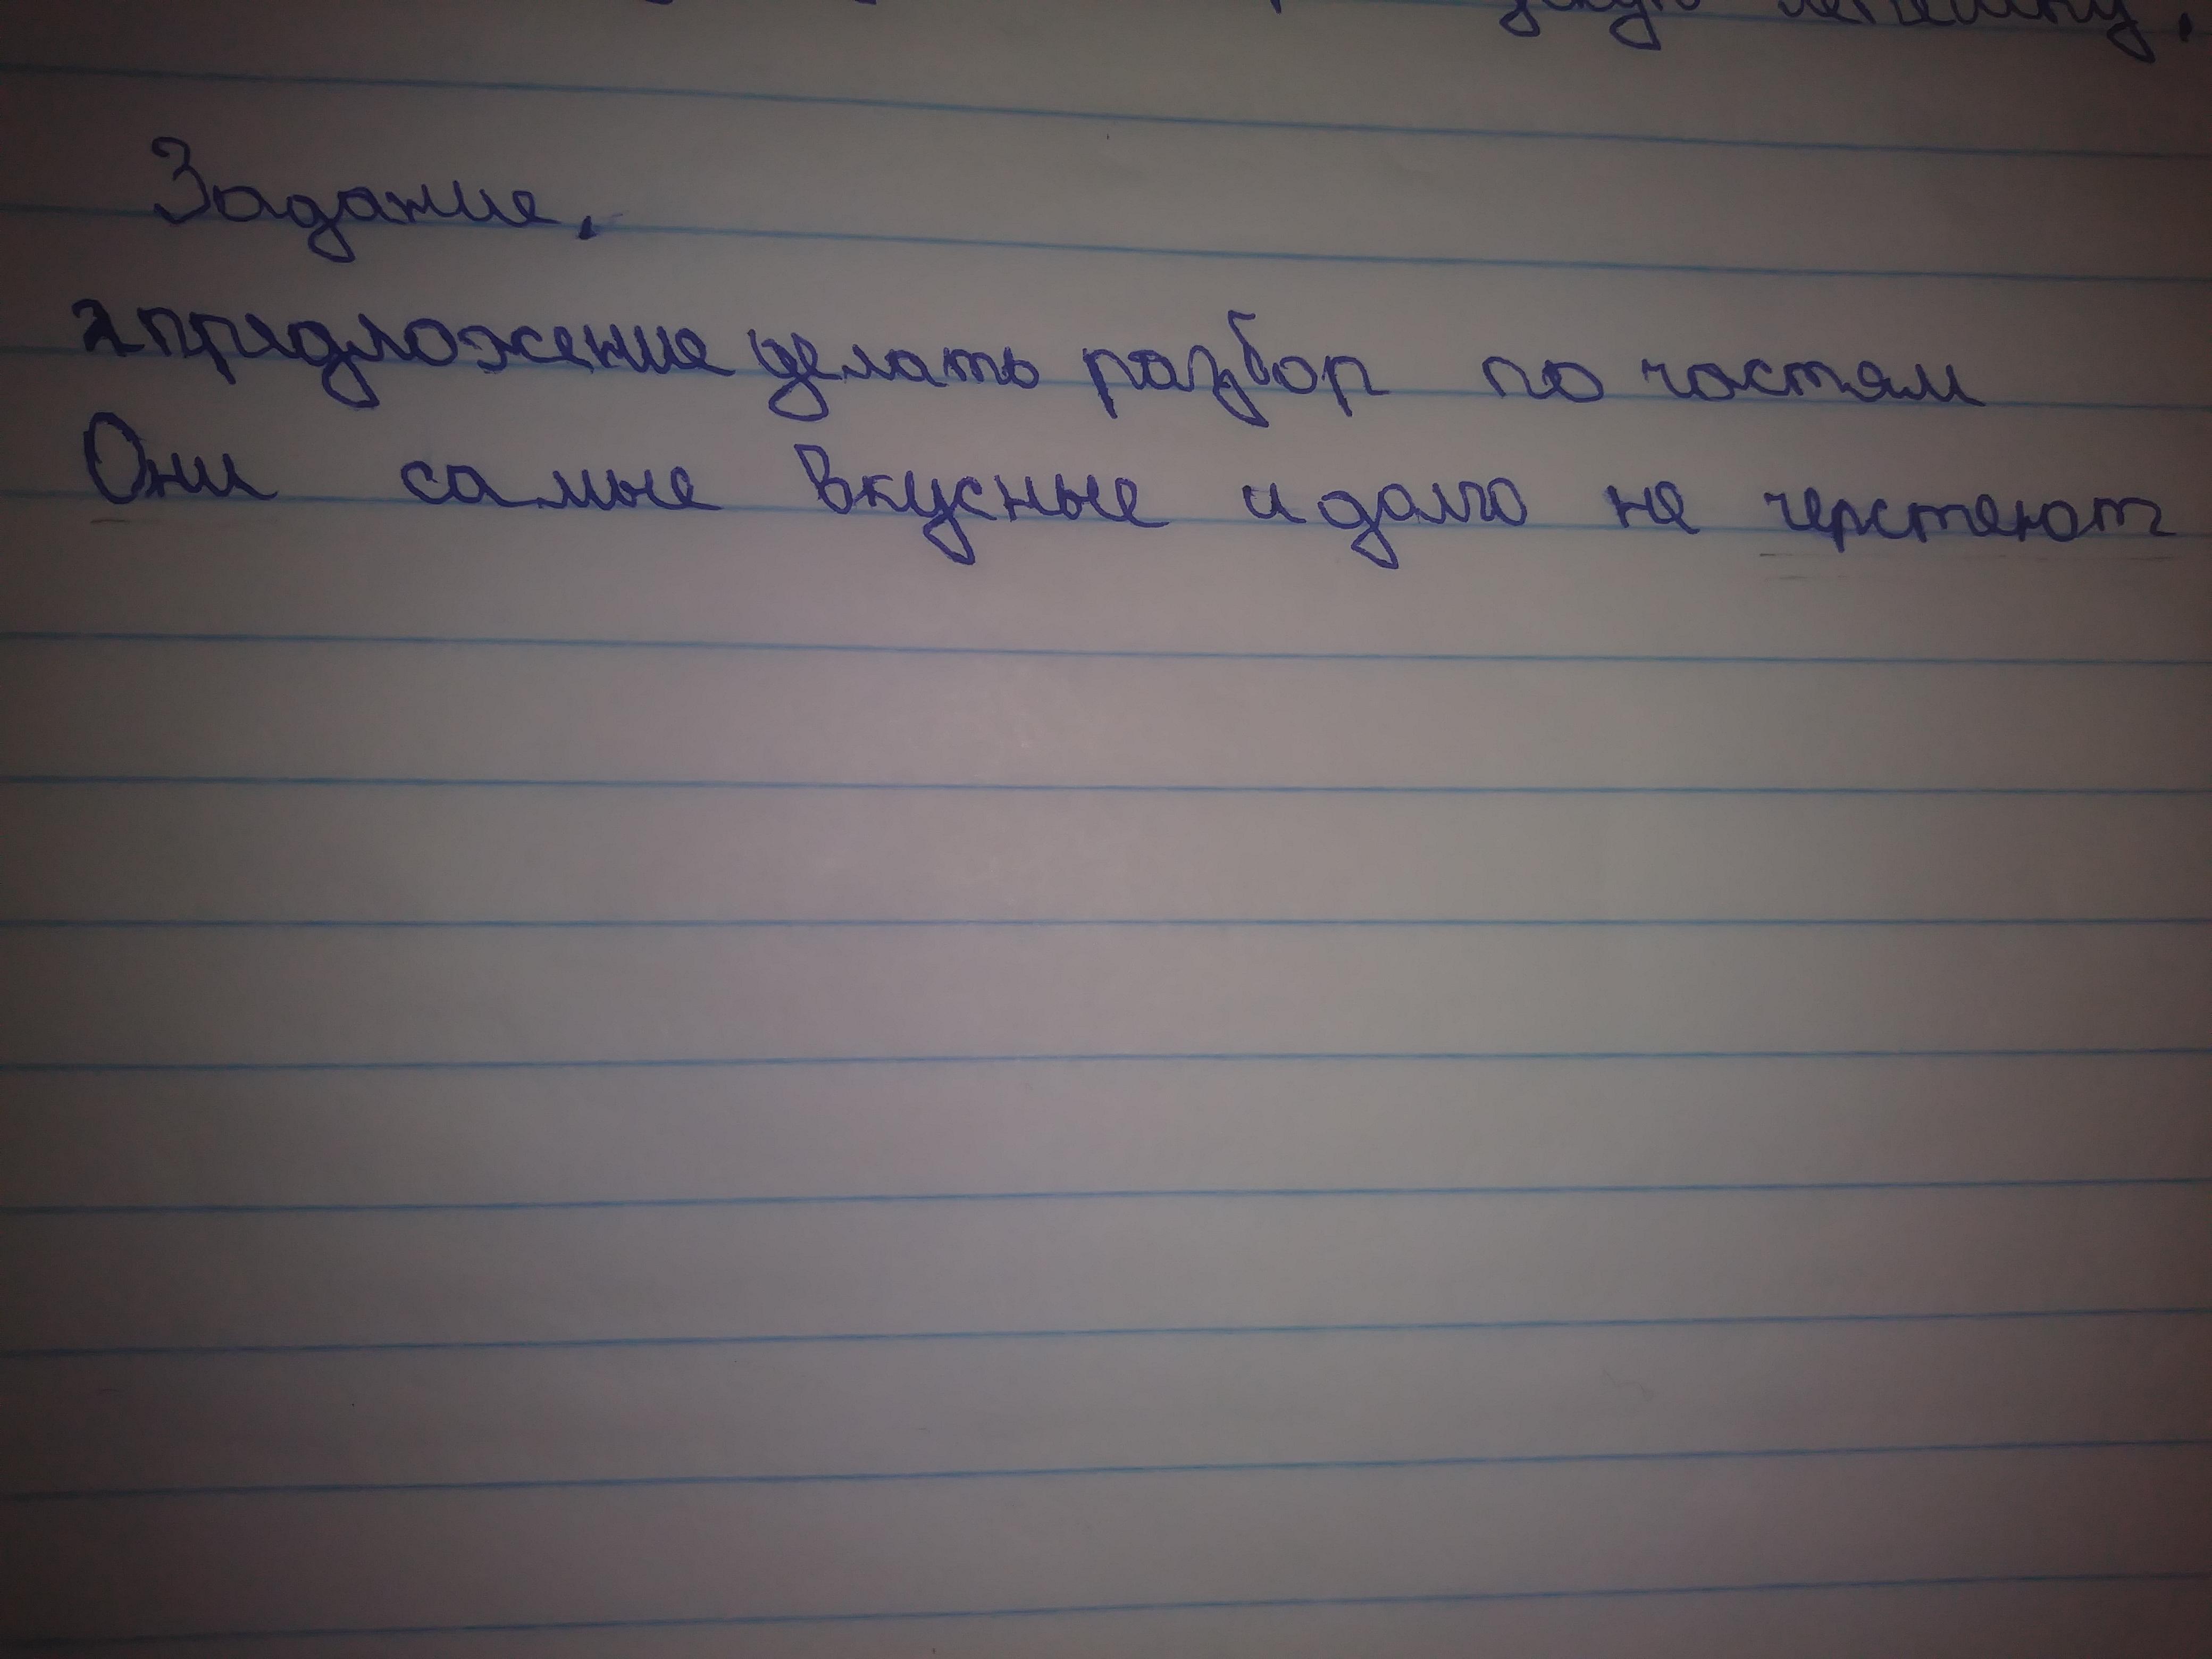 лепёшку.
Задание.
2 предложение делать разбор по частям
Они самые вкусные и долго не черствеют